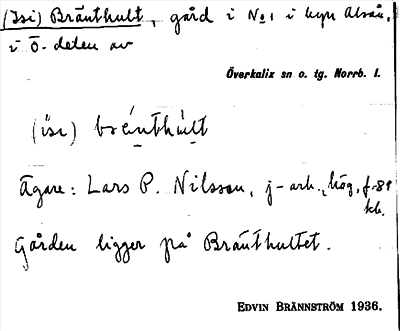 (Isi) Bränthult, gård i No 1 i byn Alsån,
i Ö-delen av
Överkalix sn o. tg. Norrb. l.
(isi) brénthúlt
Ägare: Lars P. Nilsson, j-arb., hög, f-89
Gården ligger på Bränthultet.
EDVIN BRÄNNSTRÖM 1936.